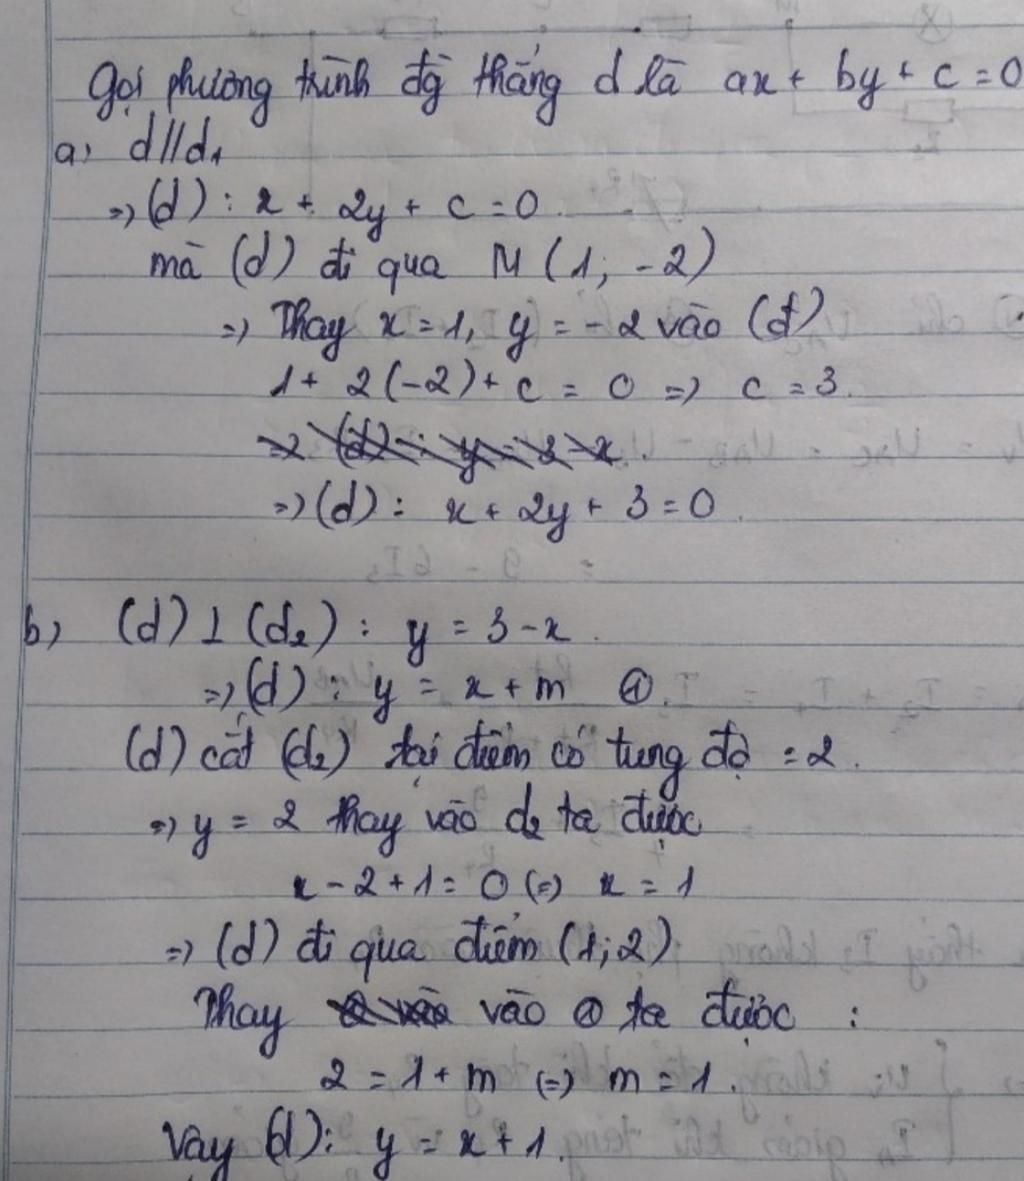 Gọi phương trình đg thẳng d là ax + by + c = 0
a, d//d₁
=> (d) : x + 2y + c = 0.
mà (d) đi qua M (1; -2)
=> Thay x = 1, y = -2 vào (d)
1 + 2(-2) + c = 0 => c = 3.
=> (d) : y = 3 - x.
=> (d) : x + 2y + 3 = 0.
b, (d) ⊥ (d₂) : y = 3 - x.
=> (d) : y = x + m ①.
(d) cắt (d₂) tại điểm có tung độ = 2.
=> y = 2 thay vào d₂ ta được
x - 2 + 1 = 0 (=) x = 1
=> (d) đi qua điểm (1; 2)
Thay vào ① ta được :
2 = 1 + m (=) m = 1.
Vậy (d) : y = x + 1.